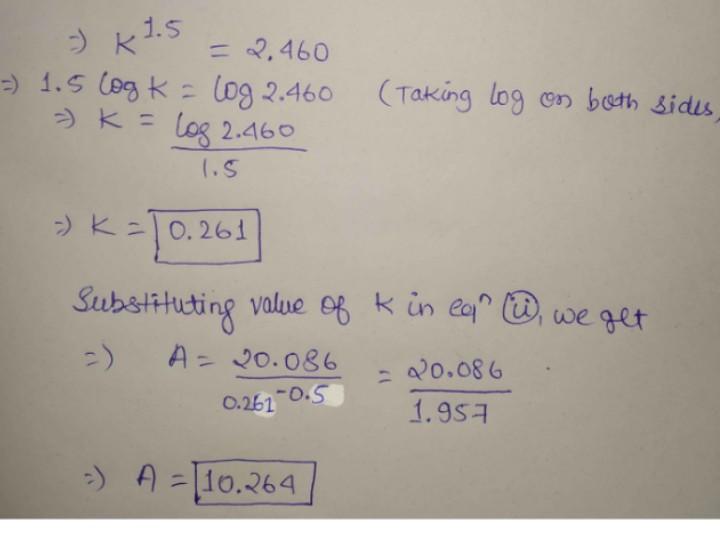 ⇒ K^1.5 = 2.460
⇒ 1.5 log K = log 2.460 (Taking log on both sides,
⇒ K = log 2.460 / 1.5
⇒ K = 0.261
Substituting value of K in eqⁿ (ii), we get
⇒ A = 20.086 / 0.261^-0.5 = 20.086 / 1.957
⇒ A = 10.264